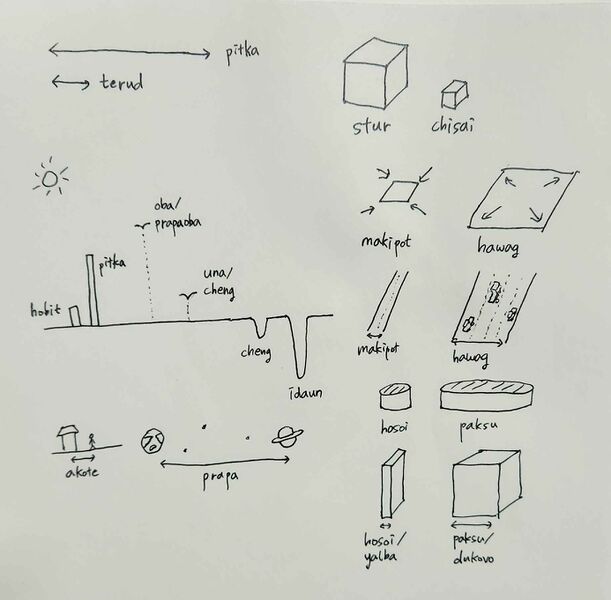 pitka
terud
stur
chisai
oba/
prapaoba
makipot
hawag
pitka
una/
cheng
hobit
cheng
idaun
makipot
hawag
hosoi
paksu
akote
prapa
hosoi/
yalba
paksu/
dukovo